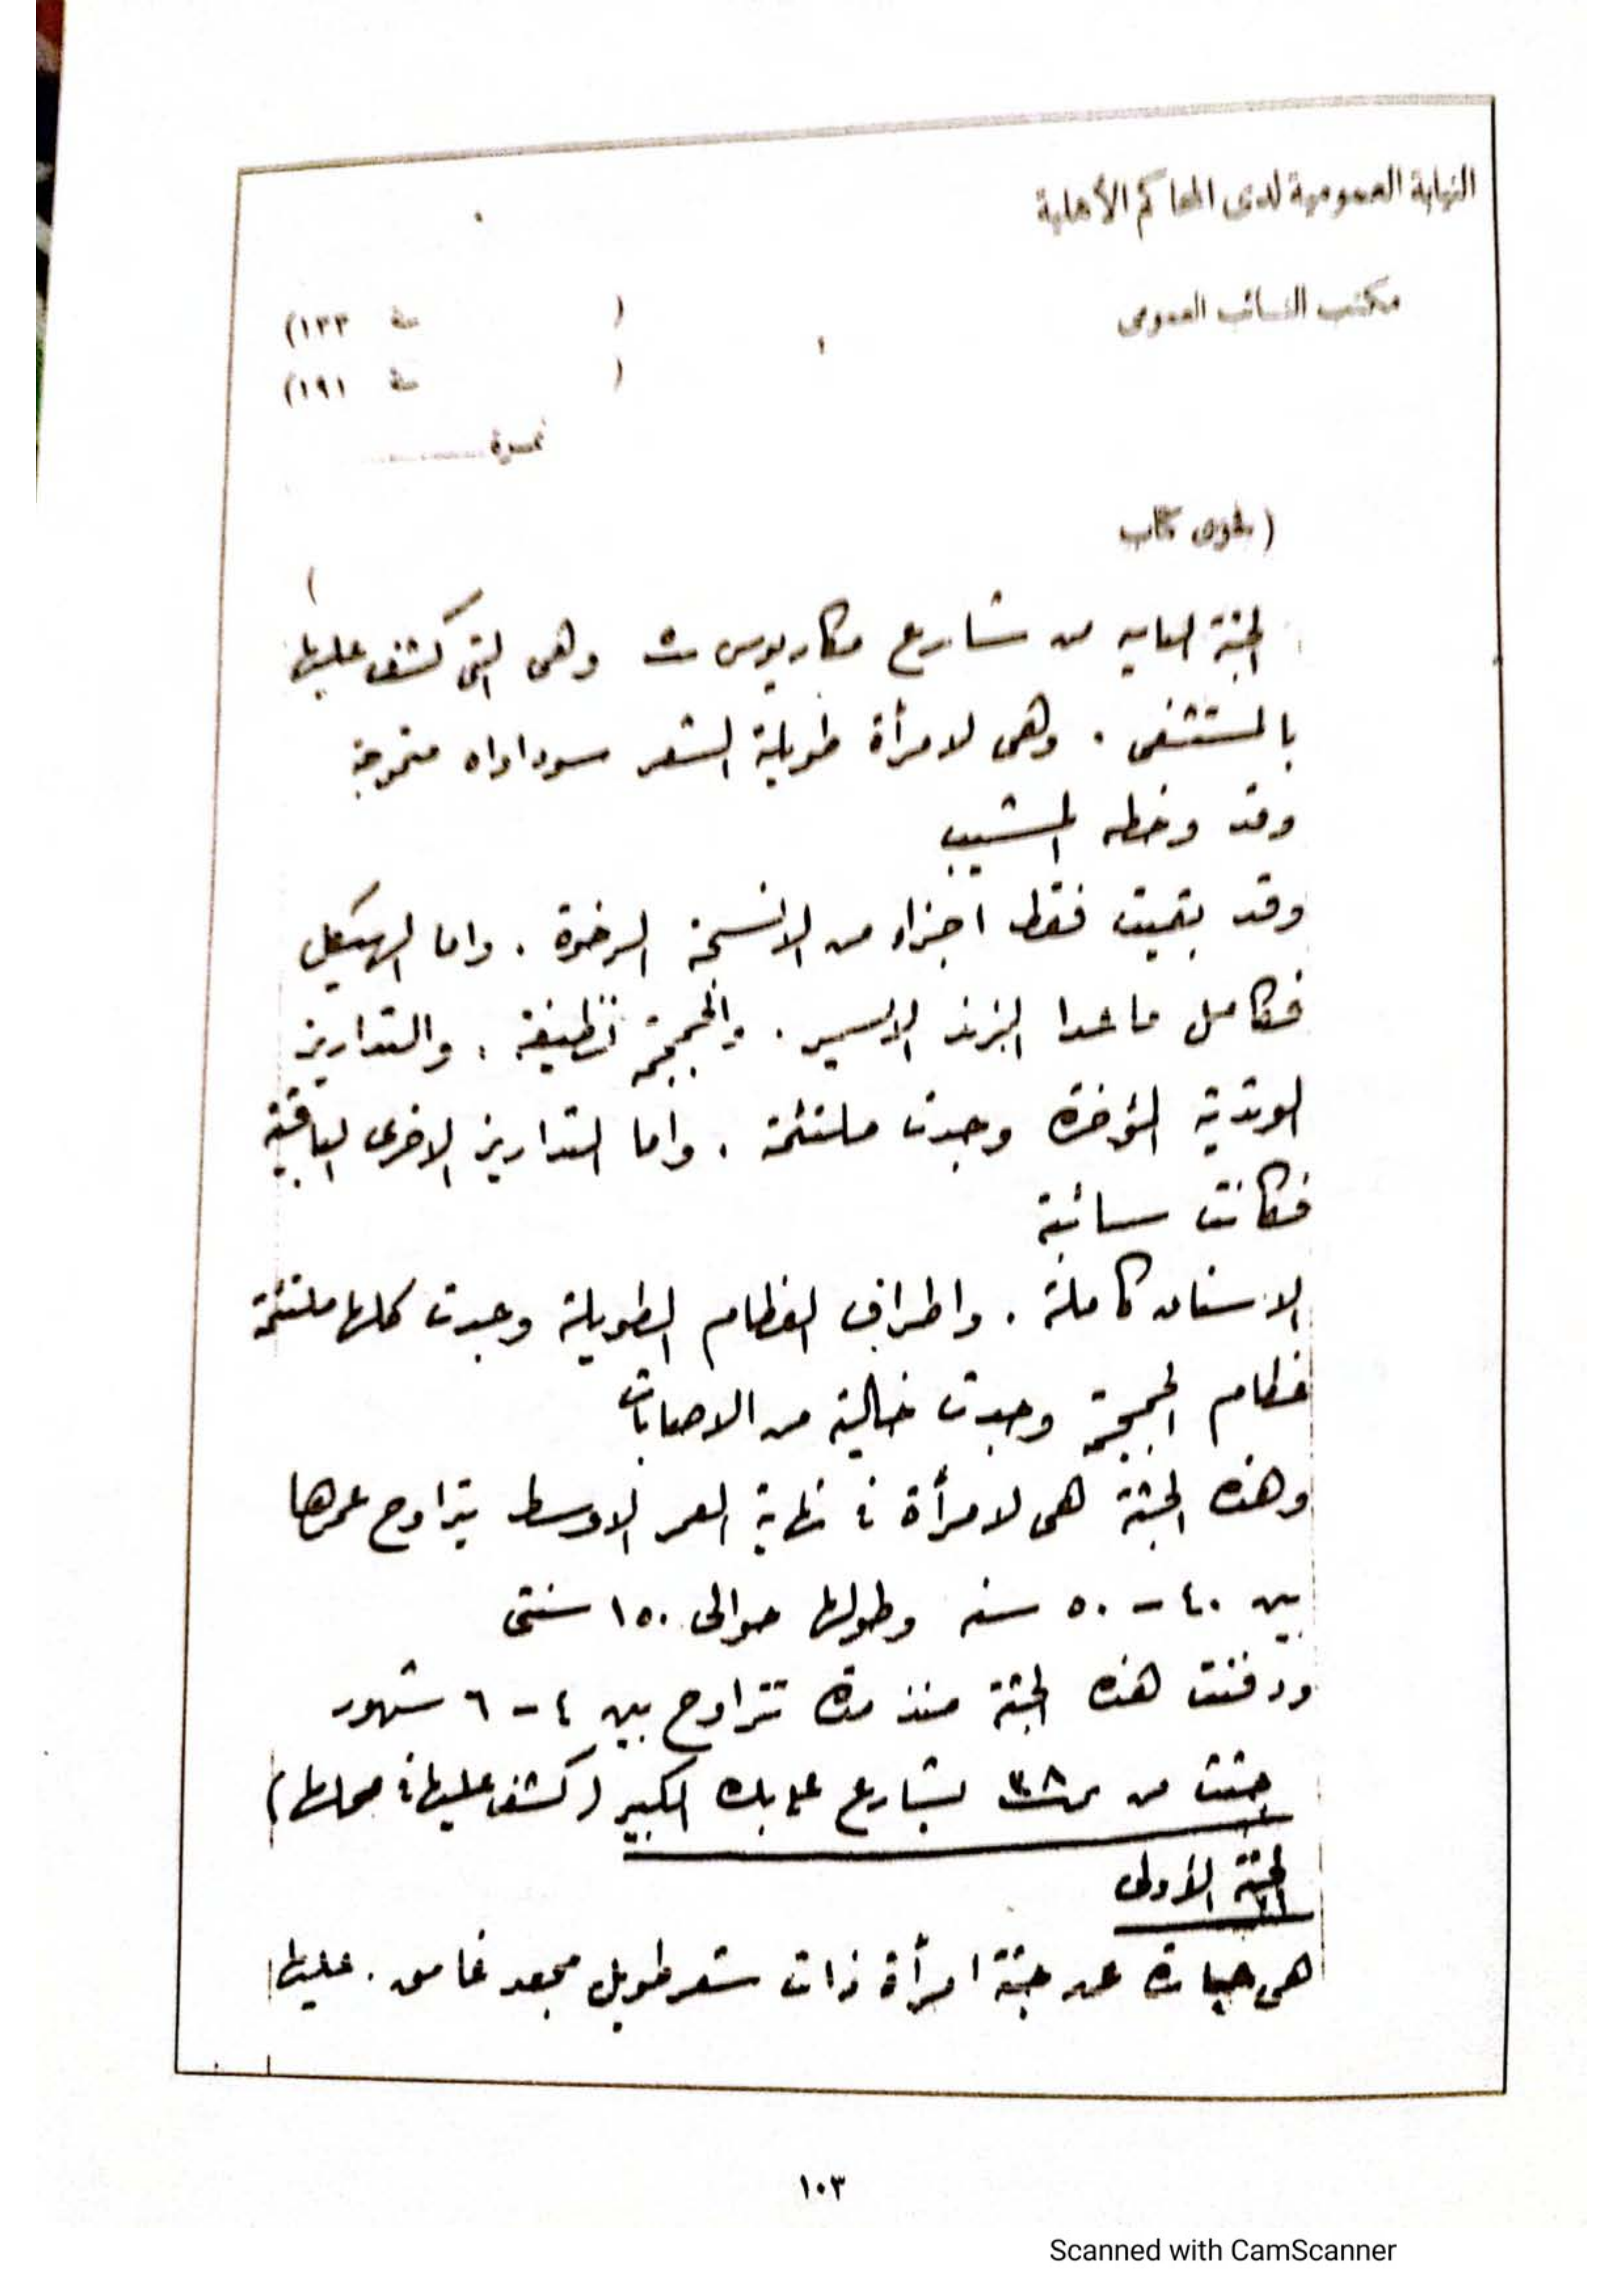 النيابة العمومية لدى المحاكم الأهلية
مكتب النائب العمومى
( سنة ١٣٣)
( سنة ١٩١)
نمرة
( كتاب
)
الجثة من شارع مكاريوس وهى التى كشف عليها
بالمستشفى . وهى لامرأة طويلة الشعر متموجة
وقد وخطه المشيب
وقد بقيت فقط اجزاء من الانسجة الرخوة . واما الهيكل
فكامل ماعدا الزند الايسر . والجمجمة نظيفة . والتداريز
الوتدية المؤخرة وجدت ملتئمة . واما التداريز الاخرى الباقية
فكانت سائبة
الاسنان كاملة . واطراف العظام الطويلة وجدت كلها ملتئمة
عظام الجمجمة وجدت خالية من الاصابات
وهذه الجثة هى لامرأة فى نهاية العمر الاوسط يتراوح عمرها
بين ٤٠ - ٥٠ سنه وطولها حوالى ١٥٠ سنتى
ودفنت هذه الجثة منذ مدة تتراوح بين ٤ - ٦ شهور
جثت من نمرة ٣٨ بشارع على بك الكبير (كشف عليها فى محلها)
الجثة الأولى
هى عبارة عن جثة امرأة ذات شعر طويل مجعد غامق . عليها
١٠٣
Scanned with CamScanner